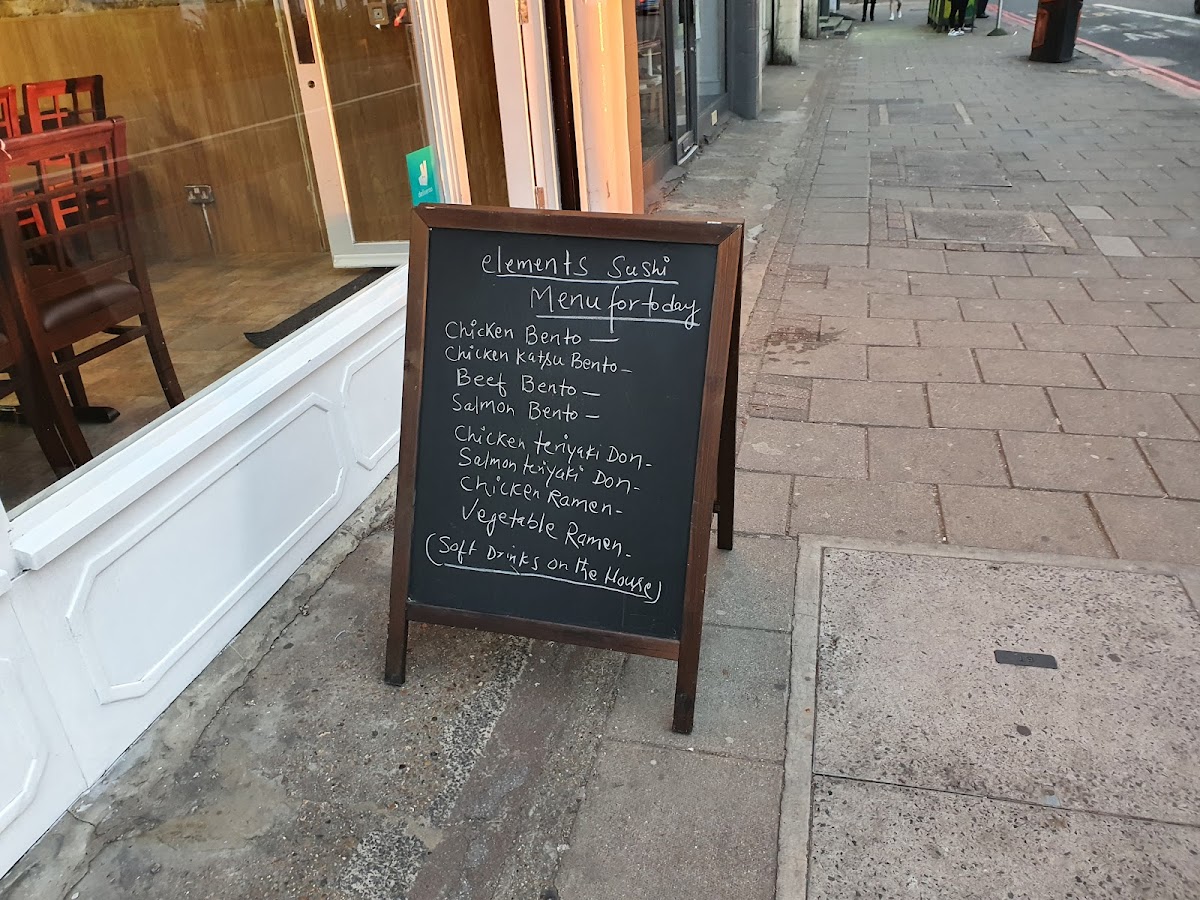 elements Sushi
Menu for today
Chicken Bento —
Chicken Katsu Bento -
Beef Bento —
Salmon Bento —
Chicken teriyaki Don -
Salmon teriyaki Don -
Chicken Ramen -
Vegetable Ramen -
(Soft Drinks on the House)
deliveroo